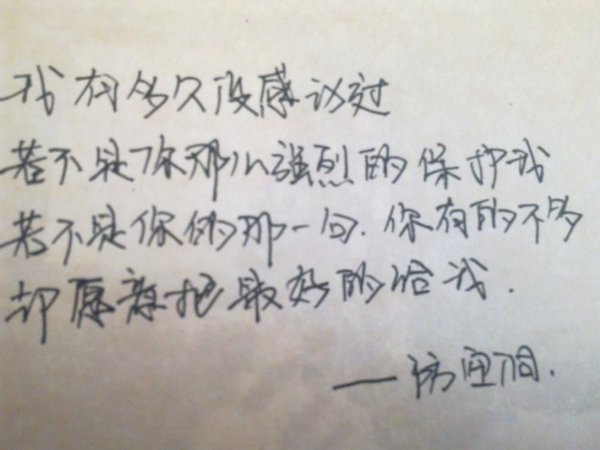 我有多久没感动过
若不是你那么强烈的保护我
若不是你的那一句.你有的不多
却愿意把最好的给我.